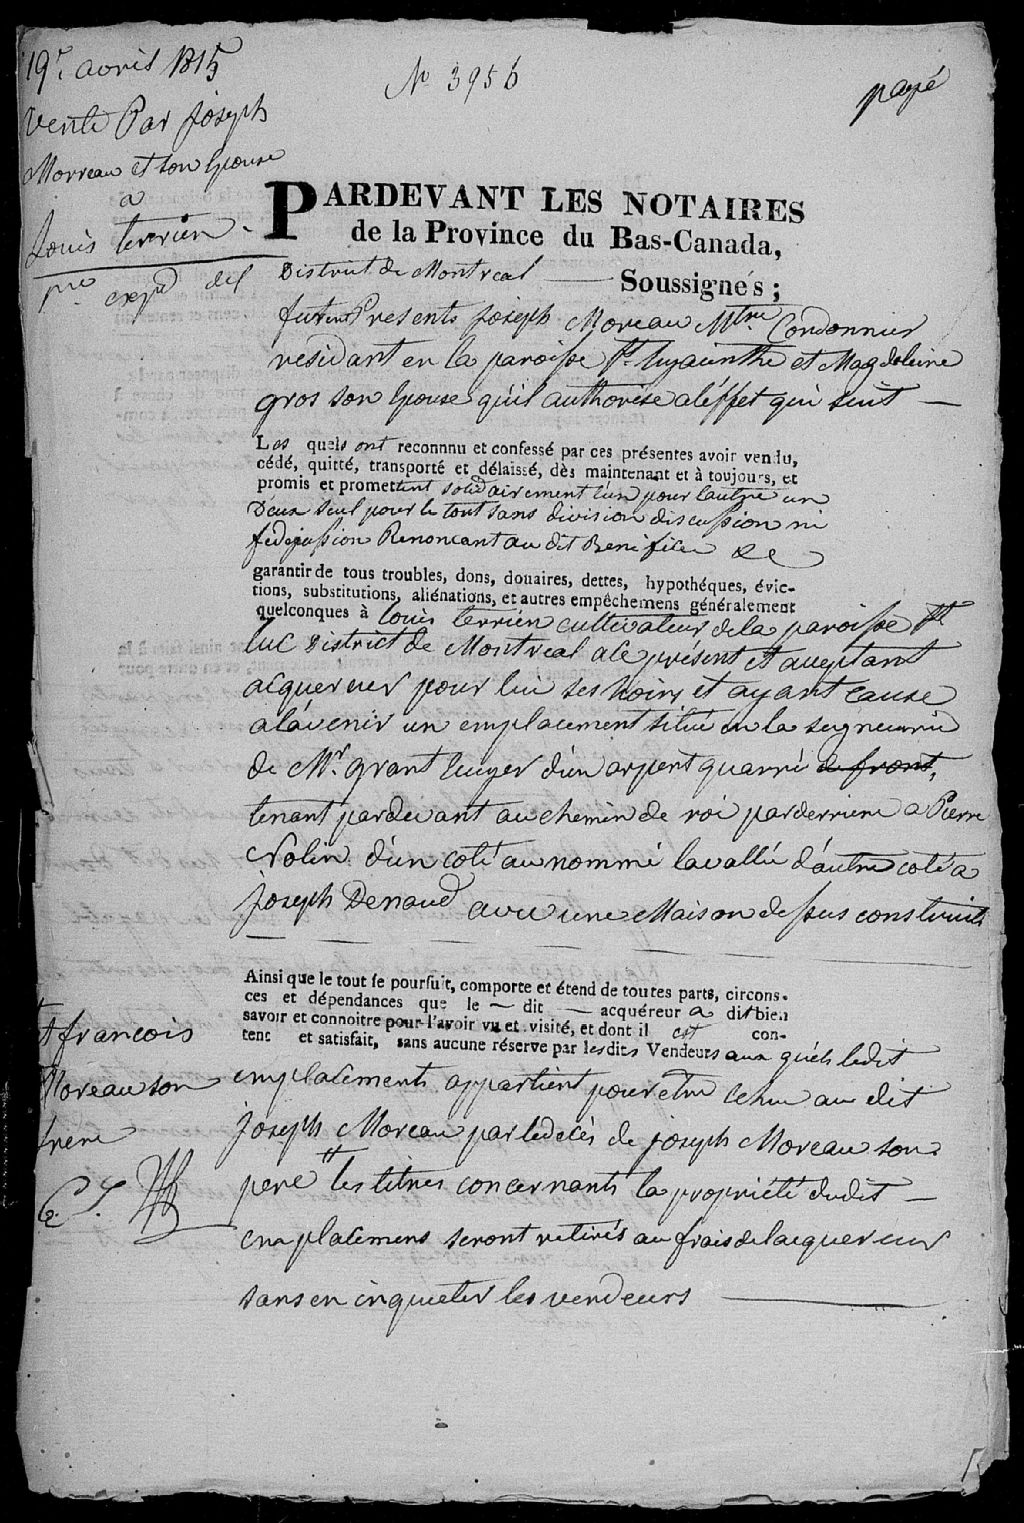 19e. avril 1815
Vente Par Joseph
Morreau et son Epouse
a
Louis terrien.
pre. expd del
No 3956
payé
PARDEVANT LES NOTAIRES
de la Province du Bas-Canada,
District de Montreal — Soussignés;
furent Presents Joseph Moreau Mtre. Cordonnier
residant en la paroisse St. hyacinthe et Magdeleine
gros son Epouse qu'il authorise a l'éffet qui suit —
Les quels ont reconnnu et confessé par ces présentes avoir vendu,
cédé, quitté, transporté et délaissé, dès maintenant et à toujours, et
promis et promettent solidairement l'un pour l'autre un
D'eux seul pour le tout sans division discussion ni
fidejussion Renoncant au dit Benefice de
garantir de tous troubles, dons, douaires, dettes, hypothéques, évic-
tions, substitutions, aliénations, et autres empêchemens généralement
quelconques à louis terrien cultivateur de la paroisse St
luc District de Montreal a ce présent et acceptant
acquereur pour lui ses hoirs et ayant cause
a l'avenir un emplacement situé en la seigneurie
de Mr. grant Ecuyer d'un arpent quarré de front,
tenant pardevant au chemin de roi parderriere a Pierre
Nolin d'un coté au nommé lavallée d'autre coté a
Joseph Denaud avec une Maison dessus construite
Ainsi que le tout se poursuit, comporte et étend de toutes parts, circons-
ces et dépendances que le — dit — acquéreur a dit bien
savoir et connoitre pour l'avoir vu et visité, et dont il est con-
tent et satisfait, sans aucune réserve par lesdits Vendeurs aux quels ledit
emplacements appartient pour etre echu au dit
Joseph Moreau par le decés de Joseph Moreau son
pere les titres concernants la propriété dudit —
emplacemens seront retirés au frais de l'acquereur
sans en inquieter les vendeurs —
et francois
Moreau son
frere